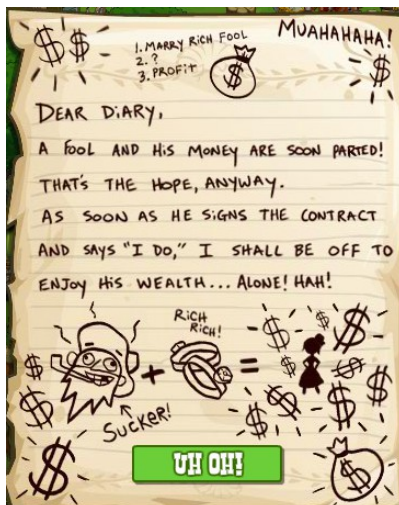 MUAHAHAHA!
1. MARRY RICH FOOL
2. ?
3. PROFIT
DEAR DIARY,
A FOOL AND HIS MONEY ARE SOON PARTED!
THAT'S THE HOPE, ANYWAY.
AS SOON AS HE SIGNS THE CONTRACT
AND SAYS "I DO," I SHALL BE OFF TO
ENJOY HIS WEALTH... ALONE! HAH!
RICH
RICH!
SUCKER!
UH OH!